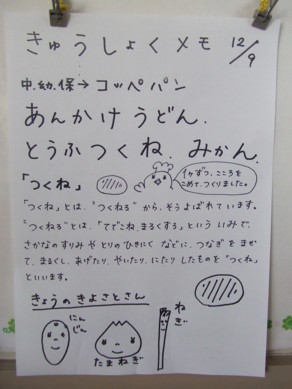 きゅうしょくメモ 12/9
中.幼.保→コッペパン
あんかけうどん.
とうふつくね.みかん.
「つくね」
1ヶずつ、こころを
こめて、つくりました。
「つくね」とは、"つくねる"から、そうよばれています。
"つくねる"とは、「てでこね、まるくする」といういみで、
さかなのすりみやとりのひきにくなどに、つなぎをまぜ
て、まるくし、あげたり、やいたり、にたりしたものを"つくね"
といいます。
きょうのきよさとさん
にんじん
たまねぎ
ねぎ